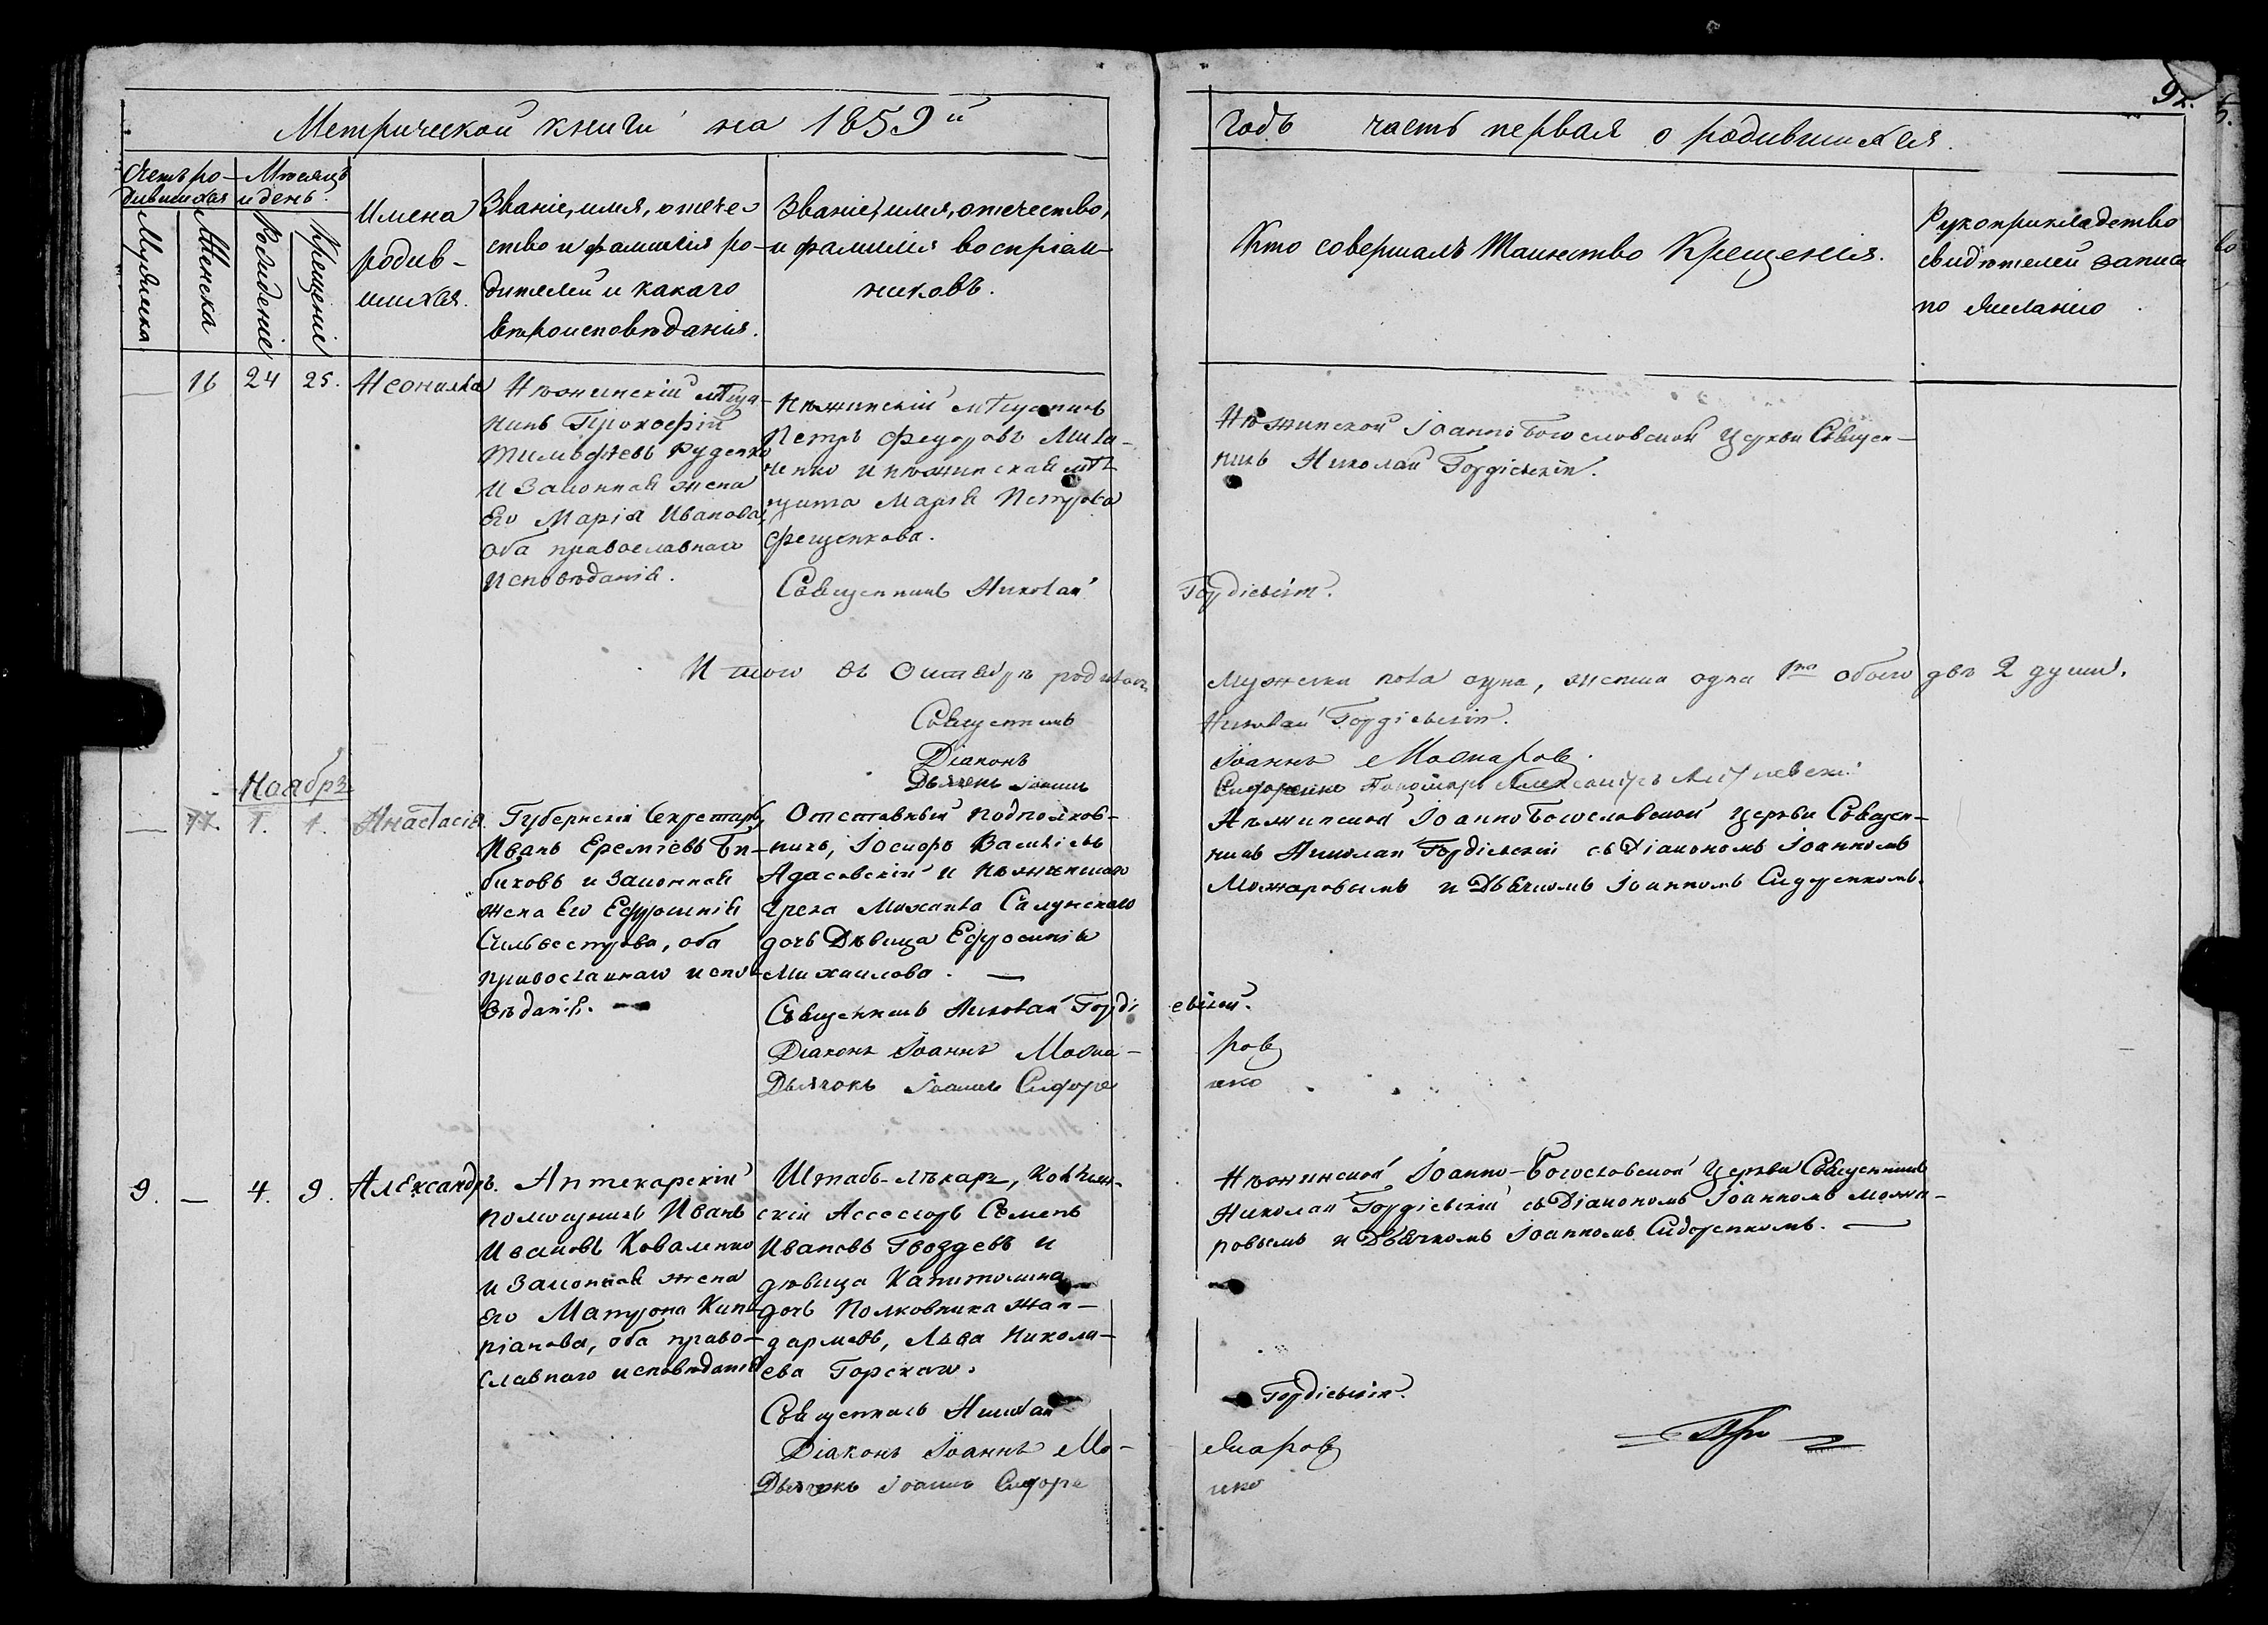 Метрической книги на 1859й
годъ часть первая о родившихся.
Счетъ ро-
дившихся
Мѣсяцъ
и день.
Мужеска
Женска
Рожденіе
Крещеніе
Имена
родив-
шихся.
Званіе, имя, отече-
ство и фамилія ро-
дителей и какаго
вѣроисповѣданія.
Званіе, имя, отечество,
и фамилія воспріем-
никовъ.
Кто совершалъ Таинство Крещенія.
Рукоприкладство
свидѣтелей записи
по желанію
16 24 25. Неонила
Нѣжинскій мѣща-
нинъ Прокофій
Тимофѣевъ Руденко
и Законная жена
Его Марія Иванова,
оба православнаго
Исповѣданія.
Нѣжинскій мѣщанинъ
Петръ Федоровъ
и нѣжинская мѣ-
щанка Марія Петрова
Фещенкова.
Священникъ Николай
Гордіевскій.
Нѣжинской Іоанно Богословской Церкви Священ-
никъ Николай Гордіевскій.
Итого въ Октябрѣ родилось
Мужеска пола одна, женска одна 1на обоего двѣ 2 души.
Священникъ
Николай Гордіевскій.
Діаконъ
Іоаннъ Можаровъ
Дьячекъ Іоаннъ
Сидоренко Пономарь Александръ
Ноябрь
— 17. 1. 1. Анастасія.
Губернскій Секретарь,
Иванъ Еремѣевъ Би-
биковъ и Законная
жена Его Ефросинія
Сильвестрова, оба
православнаго испо-
вѣданія. —
Отставный подполков-
никъ, Іосифъ Васильевъ
Адасовскій и Нѣжинскаго
Грека Михаила Салунскаго
дочь Дѣвица Ефросинія
Михаилова. —
Священникъ Николай Горді
евскій.
Діаконъ Іоаннъ Можа-
ровъ
Дьячокъ Іоаннъ Сидоре
нко
Нѣжинской Іоанно Богословской Церкви Священ-
никъ Николай Гордіевскій съ Діакономъ Іоанномъ
Можаровымъ и Дьячкомъ Іоанномъ Сидоренкомъ.
9. — 4. 9. Александръ.
Аптекарскій
помощникъ Иванъ
Ивановъ Коваленко
и Законная жена
Его Матрона Кип-
ріанова, оба право-
славнаго исповѣданія
Штабъ-лѣкарь, Коллеж-
скій Ассесоръ Семенъ
Ивановъ Гвоздевъ и
дѣвица Капитолина
дочь Полковника Жан-
дармовъ, Льва Никола-
ева Горскаго.
Священникъ Николай
Гордіевскій.
Діаконъ Іоаннъ Мо-
жаровъ
Дьячокъ Іоаннъ Сидоре
нко
Нѣжинской Іоанно-Богословской Церкви Священникъ
Николай Гордіевскій съ Діакономъ Іоанномъ Можа-
ровымъ и Дьячкомъ Іоанномъ Сидоренкомъ. —